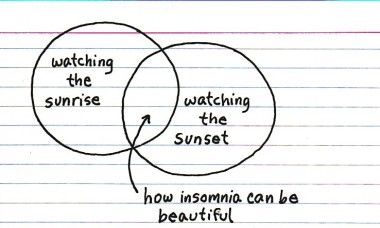 watching
the
sunrise
watching
the
sunset
how insomnia can be
beautiful